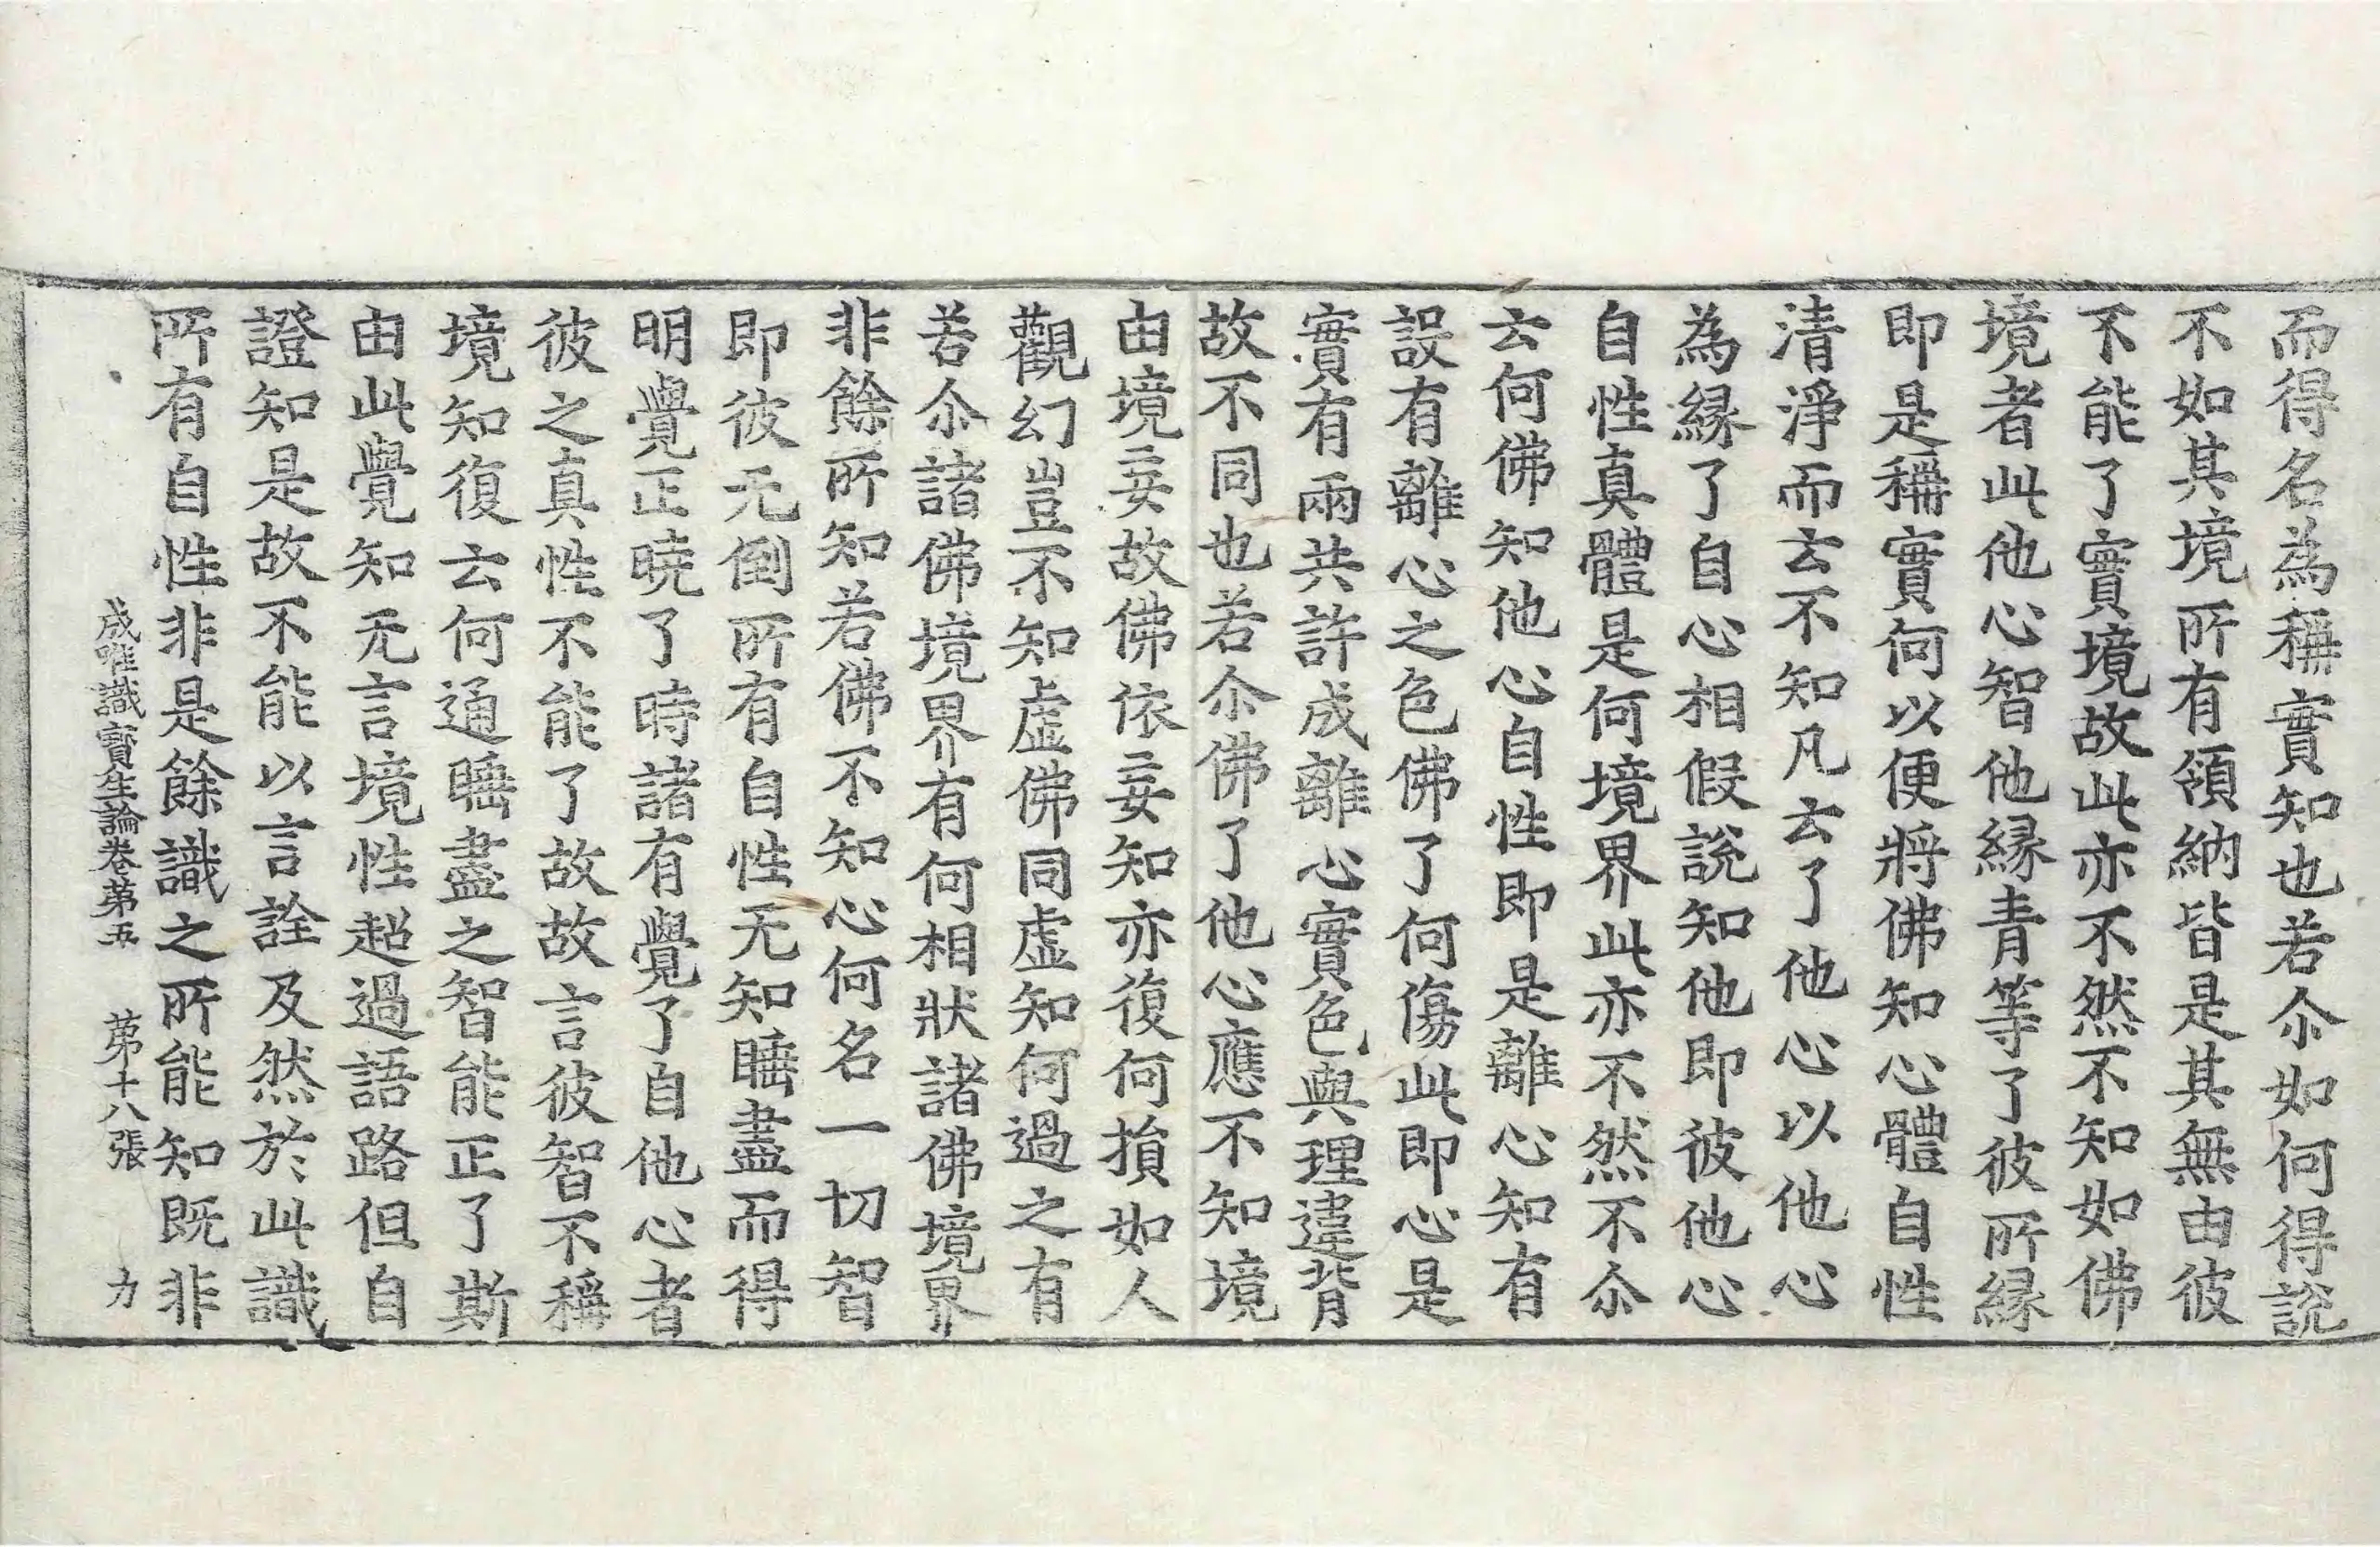 而得名為稱實知也若尒如何得說
不如其境所有領納皆是其無由彼
不能了實境故此亦不然不知如佛
境者此他心智他緣青等了彼所緣
即是稱實何以便將佛知心體自性
清淨而云不知凡云了他心以他心
為緣了自心相假說知他即彼他心
自性真體是何境界此亦不然不尒
云何佛知他心自性即是離心知有
設有離心之色佛了何傷此即心是
實有兩共許成離心實色與理違背
故不同也若尒佛了他心應不知境
由境妄故佛依妄知亦復何損如人
觀幻豈不知虛佛同虛知何過之有
若尒諸佛境界有何相狀諸佛境界
非餘所知若佛不知心何名一切智
即彼无倒所有自性无知睡盡而得
明覺正曉了時諸有覺了自他心者
彼之真性不能了故故言彼智不稱
境知復云何通睡盡之智能正了斯
由此覺知无言境性超過語路但自
證知是故不能以言詮及然於此識
所有自性非是餘識之所能知既非
成唯識寶生論卷第五　第十八張　力